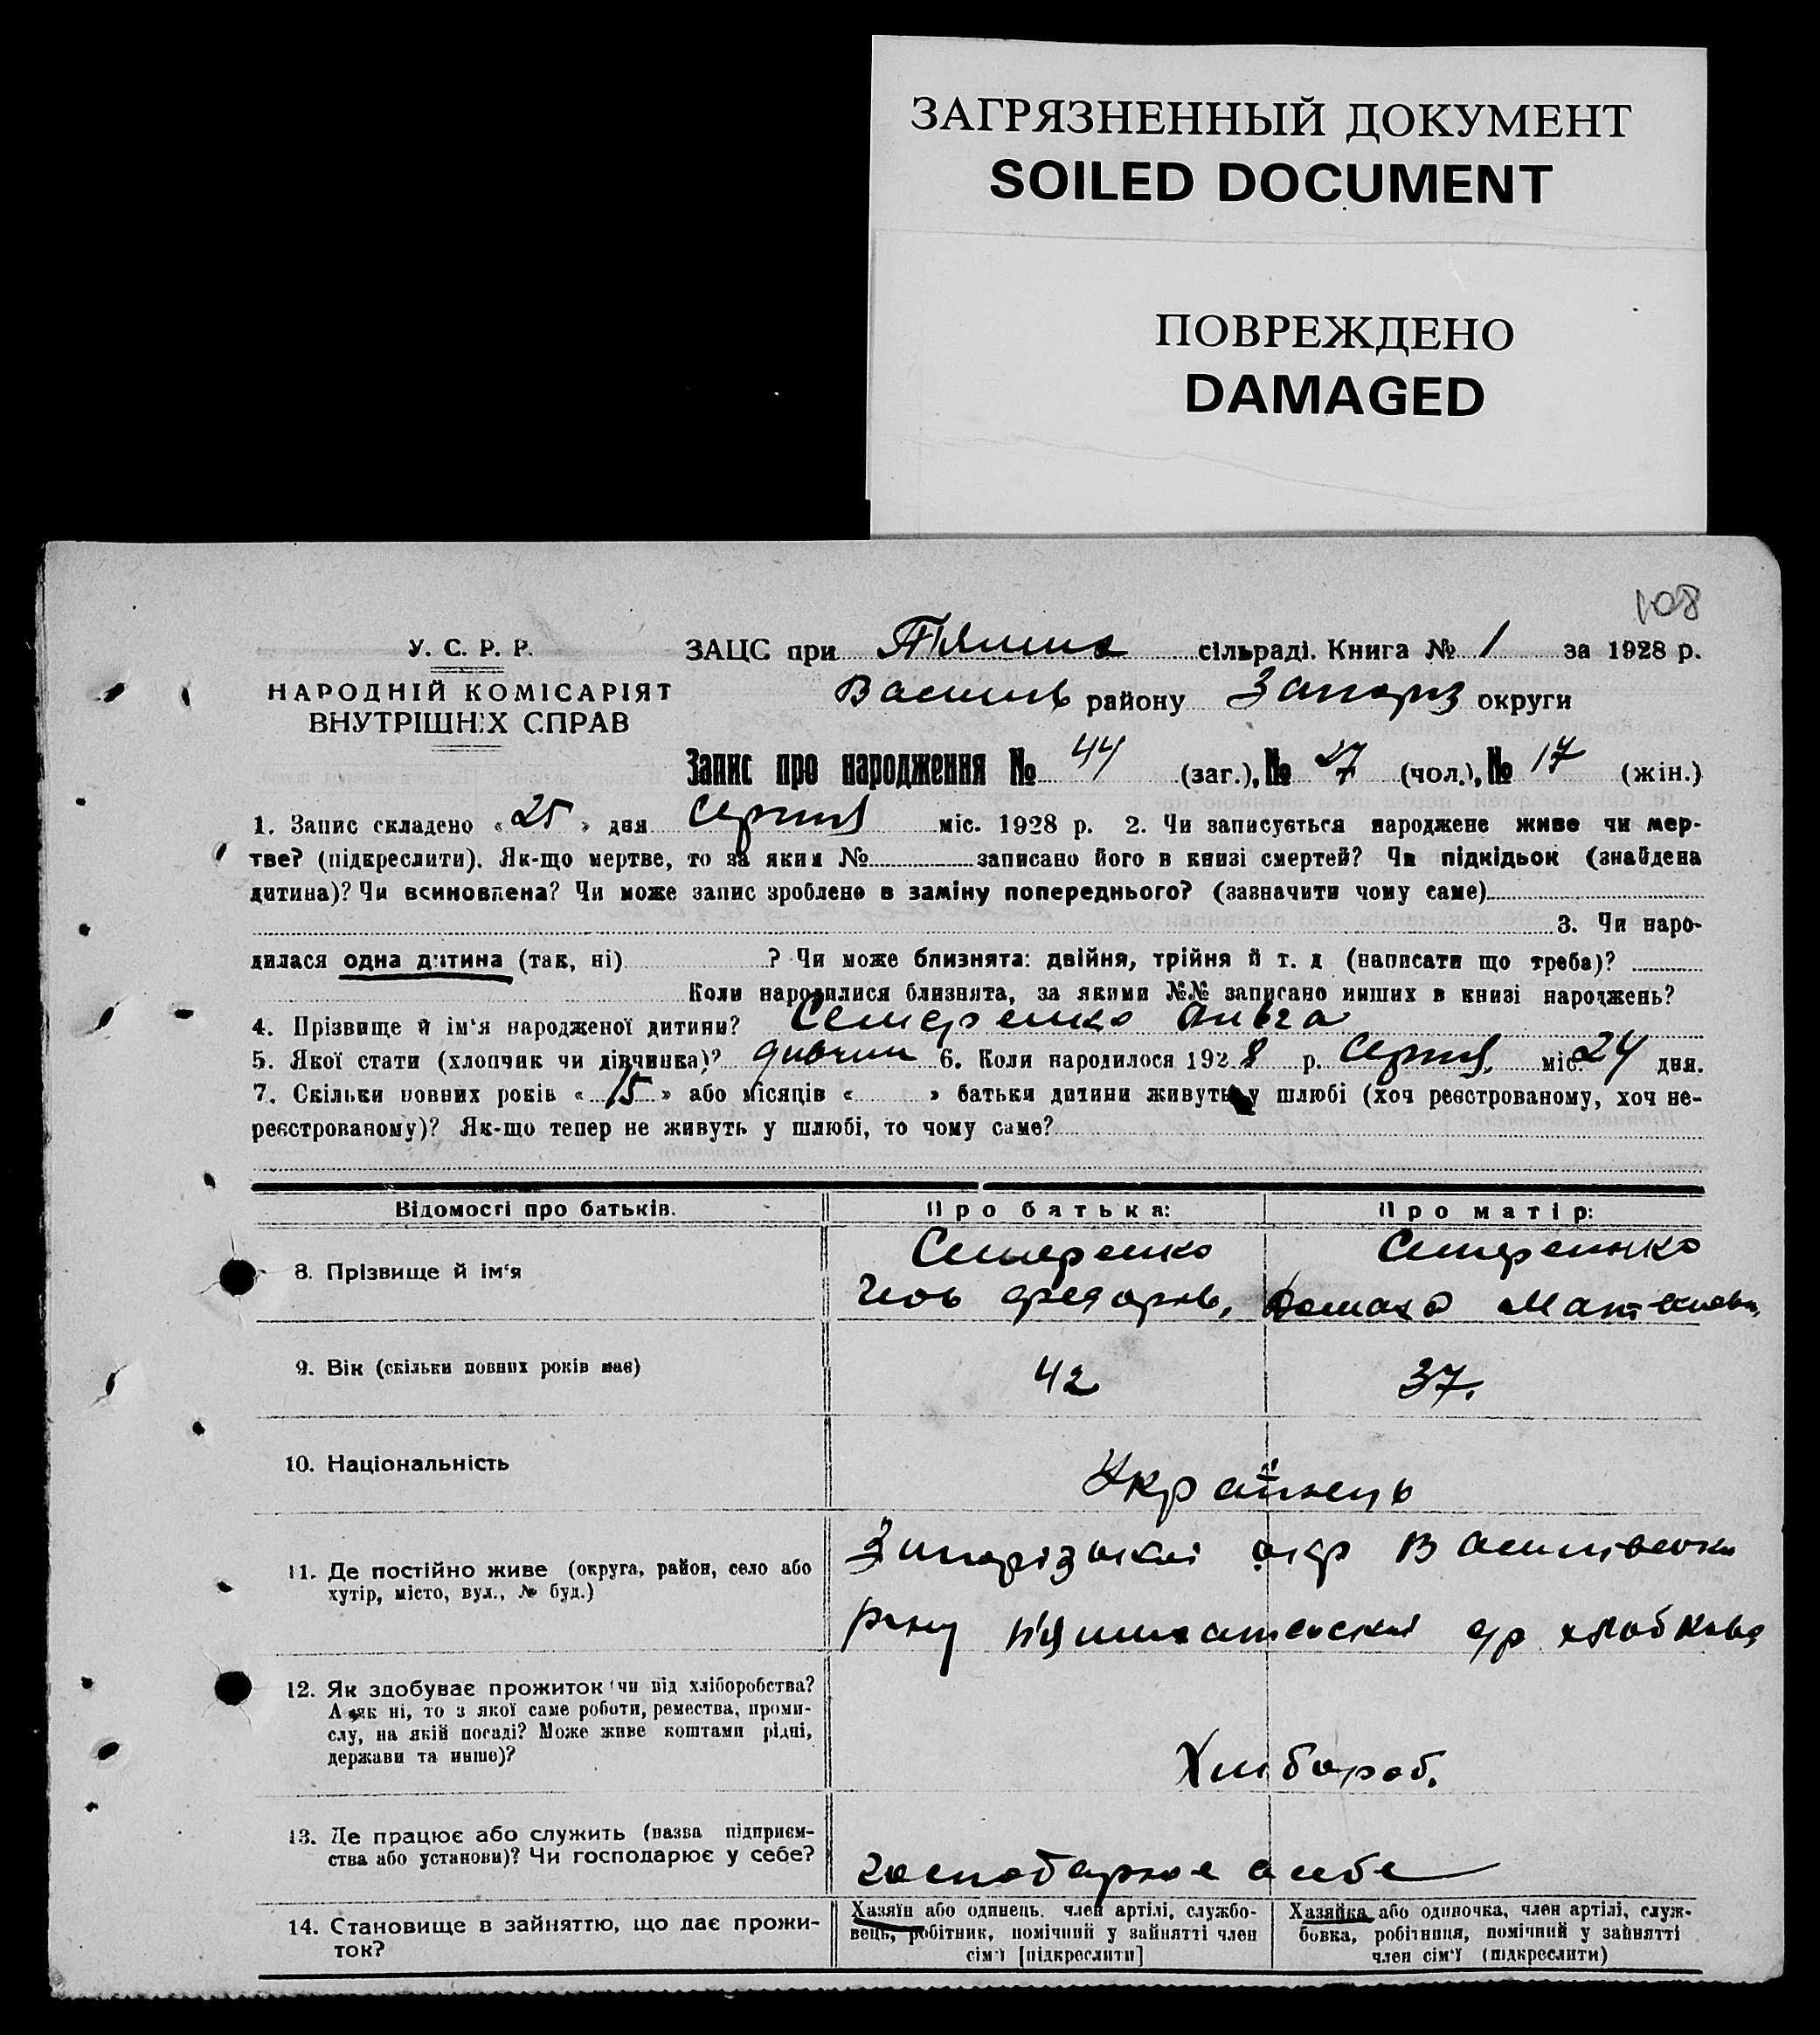 ЗАГРЯЗНЕННЫЙ ДОКУМЕНТ
SOILED DOCUMENT
ПОВРЕЖДЕНО
DAMAGED
108
У. С. Р. Р.
НАРОДНІЙ КОМІСАРІЯТ
ВНУТРІШНІХ СПРАВ
ЗАЦС при сільраді. Книга № 1 за 1928 р.
Василів району Запоріз округи
Запис про народження № 44 (заг.), № 27 (чол.), № 17 (жін.)
1. Запис складено « 25 » дня Серпня міс. 1928 р. 2. Чи записується народжене живе чи мер-
тве? (підкреслити). Як-що мертве, то за яким № записано його в книзі смертей? Чи підкідьок (знайдена
дитина)? Чи всиновлена? Чи може запис зроблено в заміну попереднього? (зазначити чому саме)
3. Чи наро-
дилася одна дитина (так, ні) ? Чи може близнята: двійня, трійня й т. д (написати що треба)?
Коли народилися близнята, за якими №№ записано инших в книзі народжень?
4. Прізвище й ім‘я народженої дитини? Семеренко Ольга
5. Якої стати (хлопчик чи дівчинка)? дивчин 6. Коли народилося 1928 р. Серпня міс. 24 дня.
7. Скільки повних років « 15 » або місяців « » батьки дитини живуть у шлюбі (хоч реєстрованому, хоч не-
реєстрованому)? Як-що тепер не живуть у шлюбі, то чому саме?
Відомості про батьків. Про батька: Про матір:
8. Прізвище й ім‘я
Семеренко Семеренко
Федоров,
9. Вік (скільки повних років має) 42 37.
10. Національність Українець
11. Де постійно живе (округа, район, село або
хутір, місто, вул., № буд.)
Запорізької окр Василівсько
рану
12. Як здобуває прожиток чи від хліборобства?
А як ні, то з якої саме роботи, ремества, проми-
слу, на якій посаді? Може живе коштами рідні,
держави та инше)?
Хлібороб.
13. Де працює або служить (назва підприєм-
ства або установи)? Чи господарює у себе?
господарює в себе
14. Становище в зайняттю, що дає прожи-
ток?
Хазяїн або одинець, член артілі, службо-
вець, робітник, помічний у зайнятті член
сім‘ї [підкреслити]
Хазяйка або одиночка, член артілі, служ-
бовка, робітниця, помічний у зайнятті
член сім‘ї (підкреслити)